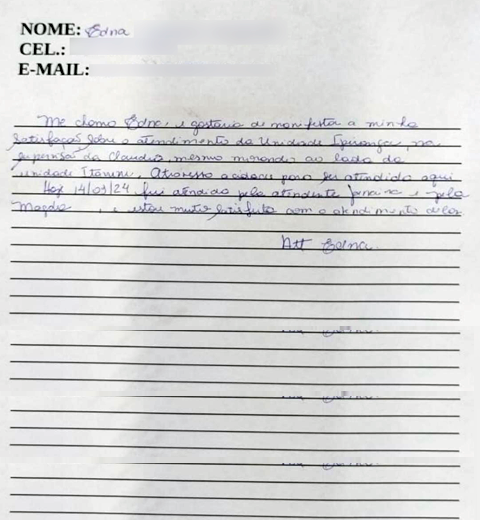 NOME: Edna
CEL.:
E-MAIL:
Me chamo Edna, e gostaria de manifestar a minha
satisfação sobre o atendimento da Unidade Ipiranga, na
supervisão da Claudia, mesmo morando ao lado da
unidade Itavuvu, Atravesso a cidade para ser atendida aqui
Hoje 14/03/24 fui atendida pela atendente e pela
Magda, e estou muito satisfeita com o atendimento delas
Att Edna.